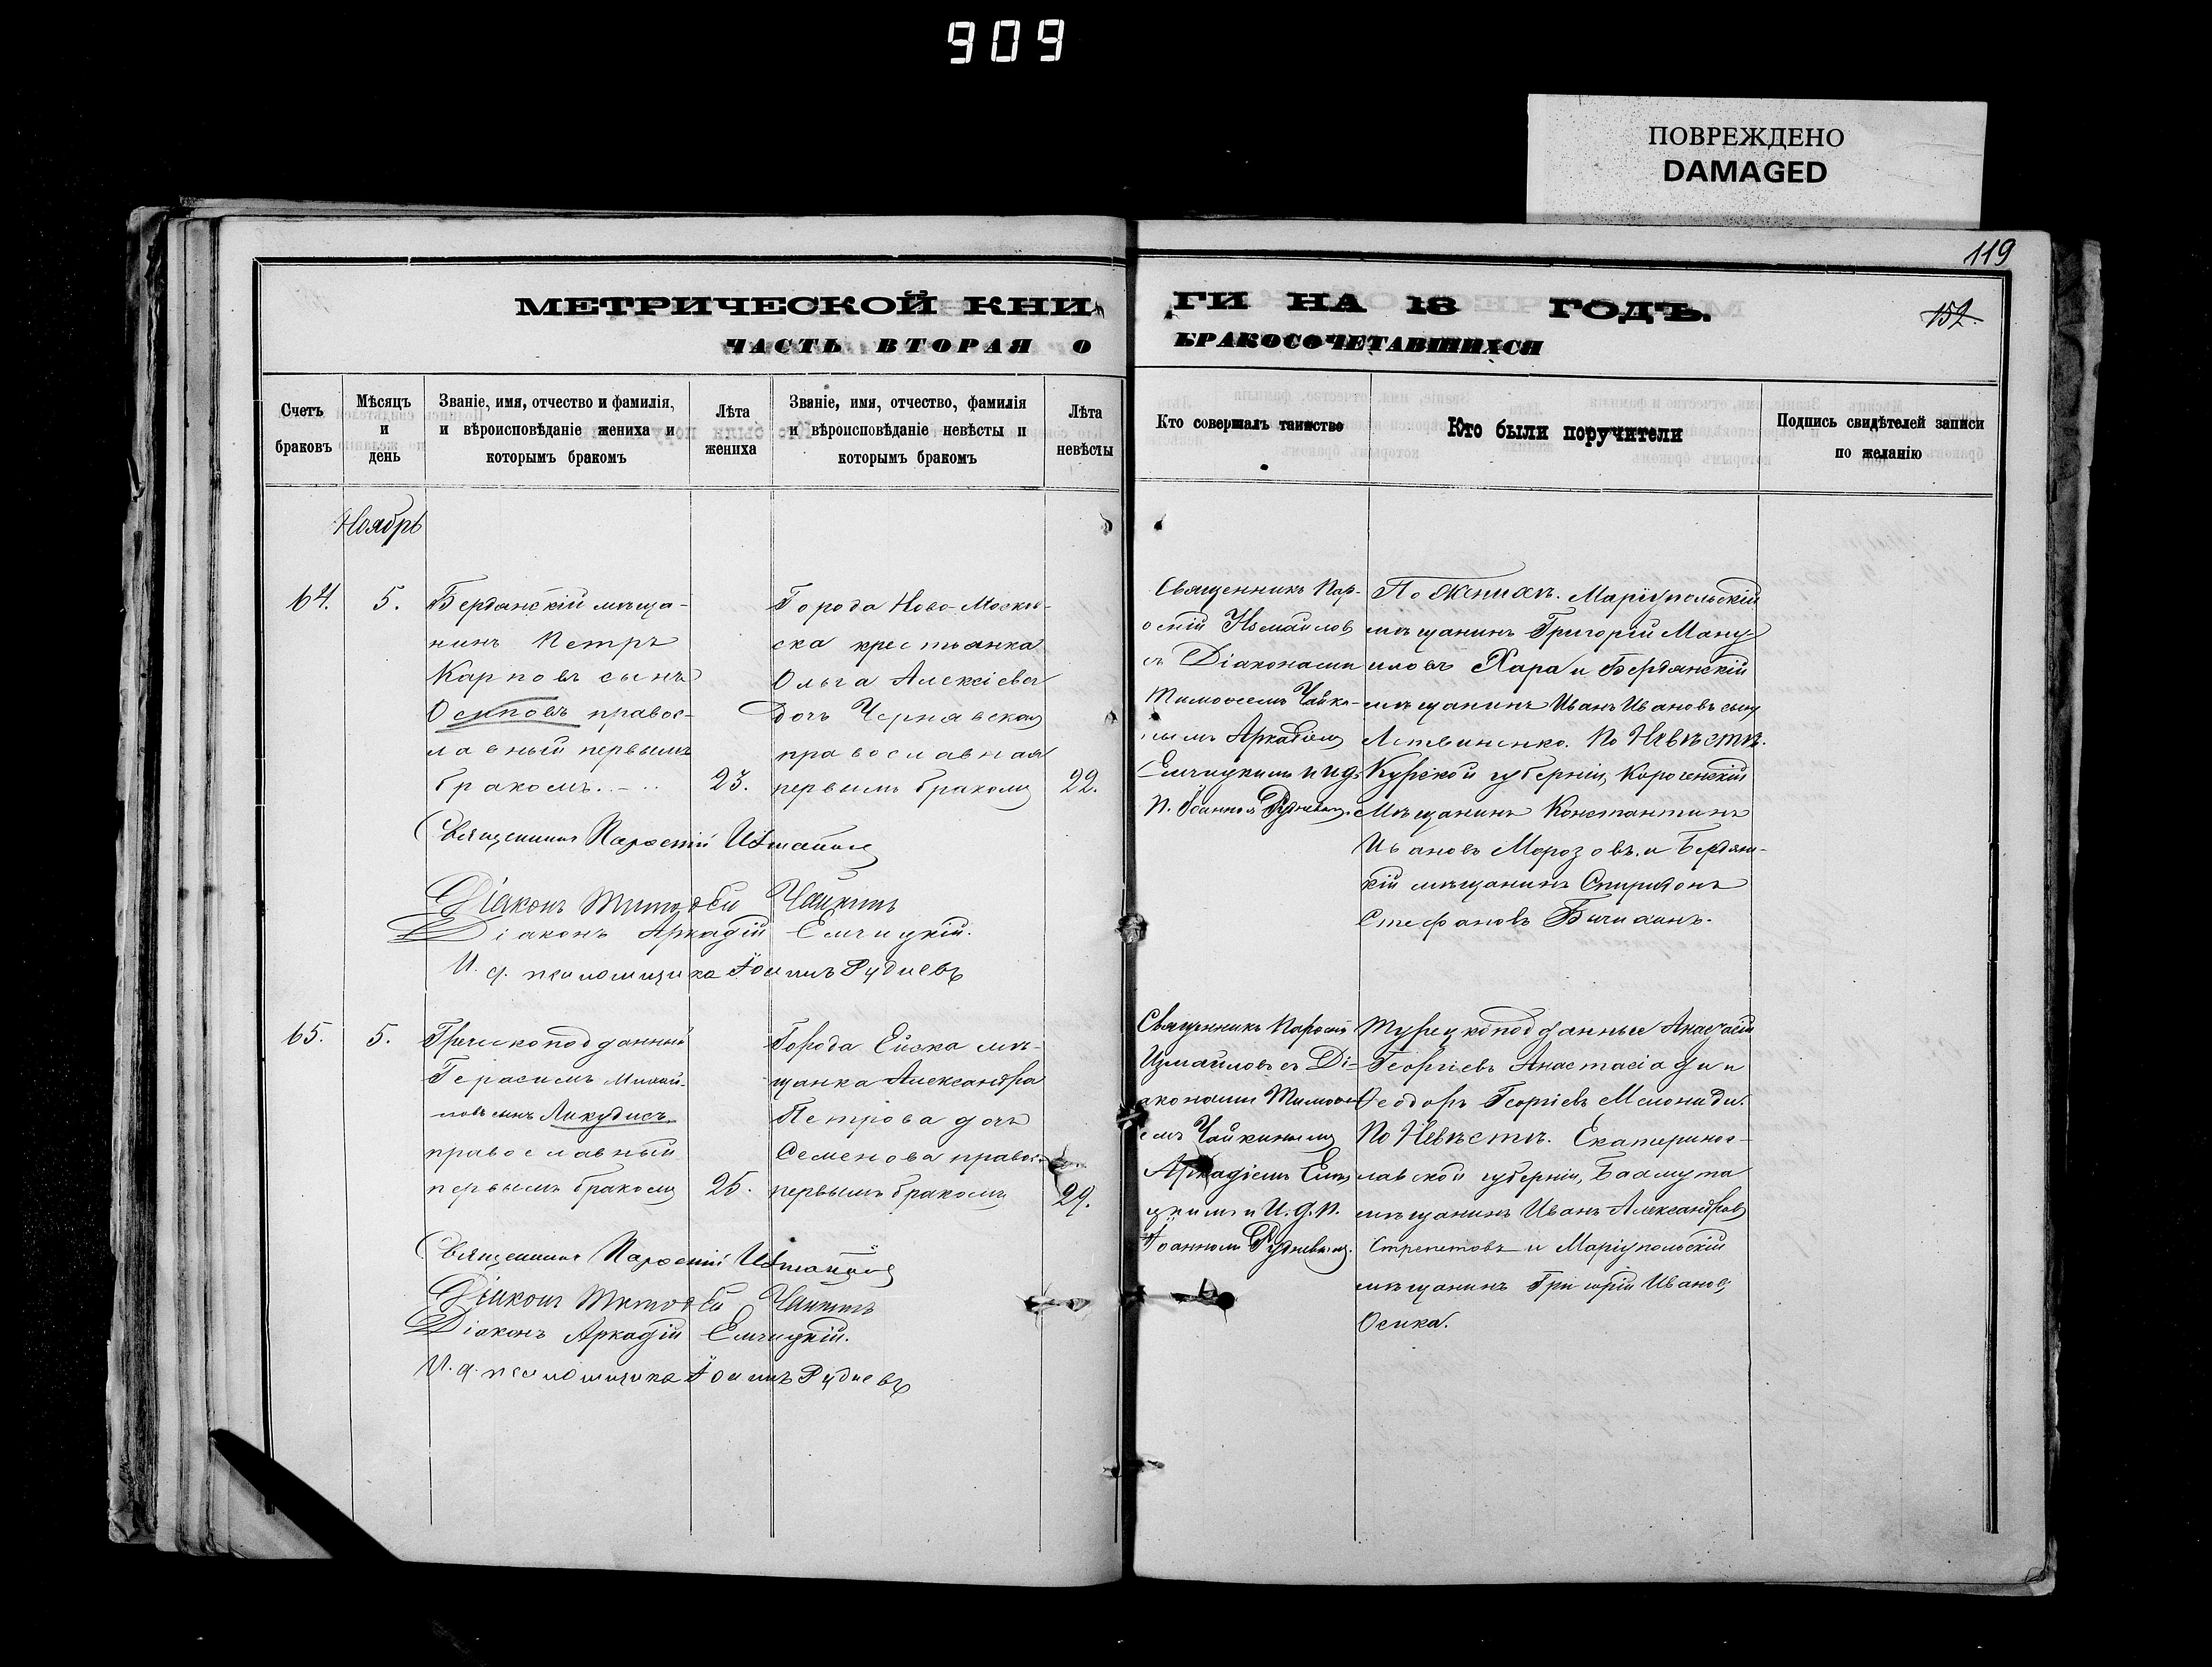 909
ПОВРЕЖДЕНО
DAMAGED
119
152.
МЕТРИЧЕСКОЙ КНИ
ГИ НА 18 ГОДЪ.
ЧАСТЬ ВТОРАЯ О
БРАКОСОЧЕТАВШИХСЯ
Счетъ
браковъ
Мѣсяцъ
и
день
Званіе, имя, отчество и фамилія,
и вѣроисповѣданіе жениха и
которымъ бракомъ
Лѣта
жениха
Званіе, имя, отчество, фамилія
и вѣроисповѣданіе невѣсты и
которымъ бракомъ
Лѣта
невѣсты
Кто совершалъ таинство
Кто были поручители
Подпись свидѣтелей записи
по желанію
Ноябрь
64.
5.
Бердянскій мѣща-
нинъ Петръ
Карповъ сынъ
Осиповъ правос-
лавный первымъ
бракомъ.
23.
Города Ново-Москов-
ска крестьянка
Ольга Алексіева
дочь Чернявская
православная
первымъ бракомъ
22.
Священникъ Пар-
ѳеній Измайловъ
съ Діаконами
Тимоѳеемъ Чайки-
нымъ Аркадіемъ
Емчицкимъ и и.д.
п. Іоанномъ Рудневымъ.
По Женихѣ. Маріупольскій
мѣщанинъ Григорій Ману-
иловъ Хара и Бердянскій
мѣщанинъ Иванъ Ивановъ сынъ
Литвиненко. По Невѣстѣ.
Курской губерніи, Корочскій
Мѣщанинъ Константинъ
Ивановъ Морозовъ. и Бердян-
скій мѣщанинъ Спиридонъ
Стефановъ Бичихинъ.
Священникъ Парѳеній Измайловъ
Діаконъ Тимоѳей Чайкинъ
Діаконъ Аркадій Емчицкій.
И. д. псаломщика Іоаннъ Рудневъ
65.
5.
Греческоподданный
Герасимъ Михай-
ловъ сынъ Ликудисъ,
православный
первымъ бракомъ
25.
Города Ейска мѣ-
щанка Александра
Петрова дочь
Семенова правос.
первымъ бракомъ
29.
Священникъ Парѳеній
Измайловъ съ Ді-
аконами Тимоѳе-
емъ Чайкинымъ
Аркадіемъ Емчи-
цкимъ и И. д. п.
Іоанномъ Рудневымъ.
Турецкоподданные
Георгіевъ Анастасіади и
Ѳеодоръ Георгіевъ
По Невѣстѣ. Екатеринос-
лавской губерніи, Бахмута
мѣщанинъ Иванъ Александровъ
Стрепетовъ и Маріупольскій
мѣщанинъ Григорій Ивановъ
Осика.
Священникъ Парѳеній Измайловъ
Діаконъ Тимоѳей Чайкинъ
Діаконъ Аркадій Емчицкій.
И. д. псаломщика Іоаннъ Рудневъ